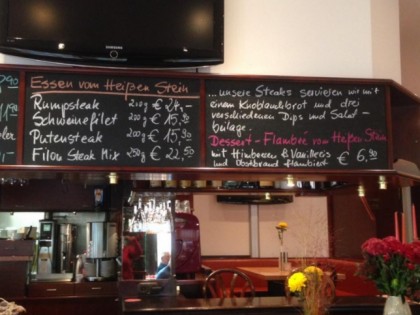 SAMSUNG
Essen vom Heißen Stein
Rumpsteak 210g € 24,-
Schweinefilet 200g € 15,90
Putensteak 200g € 15,90
Filou Steak Mix 250g € 22,50
...unsere Steaks servieren wir mit
einem Knoblauchbrot und drei
verschiedenen Dips und Salat-
beilage.
Dessert-Flambié vom Heißen Stein
mit Himbeeren & Vanilleeis
und Obstbrand flambiert € 6,90